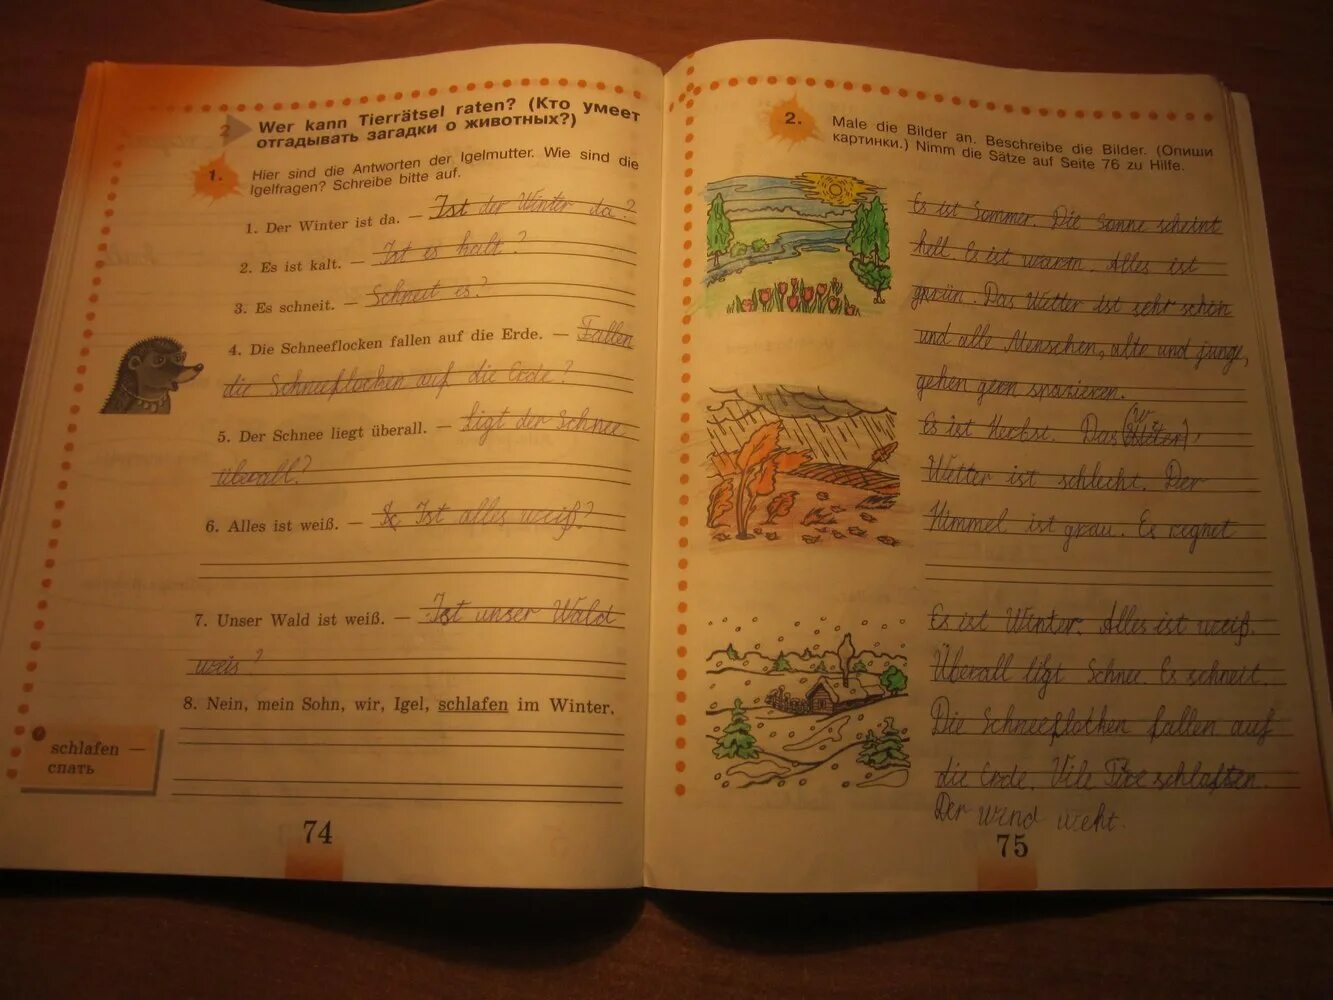 2 Wer kann Tierrätsel raten? (Кто умеет
отгадывать загадки о животных?)
1. Hier sind die Antworten der Igelmutter. Wie sind die
Igelfragen? Schreibe bitte auf.
1. Der Winter ist da. — Ist der Winter da?
2. Es ist kalt. — Ist es kalt?
3. Es schneit. — Schneit es?
4. Die Schneeflocken fallen auf die Erde. — Fallen
die Schneeflocken auf die Erde?
5. Der Schnee liegt überall. — ligt der Schnee
überall?
6. Alles ist weiß. — Ist alles weiß?
7. Unser Wald ist weiß. — Ist unser Wald
weis?
8. Nein, mein Sohn, wir, Igel, schlafen im Winter.
schlafen —
спать
74
2. Male die Bilder an. Beschreibe die Bilder. (Опиши
картинки.) Nimm die Sätze auf Seite 76 zu Hilfe.
Es ist Sommer. Die Sonne scheint
hell. Es ist warm. Alles ist
grün. Das Wetter ist sehr schön
und alle Menschen, alte und junge,
gehen gern spazieren.
Es ist Herbst. Das
Wetter ist schlecht. Der
Himmel ist grau. Es regnet
Es ist Winter. Alles ist weiß.
Überall ligt Schnee. Es schneit.
Die Schneeflocken fallen auf
die Erde. Vile Tire schlafen.
Der wind weht.
75